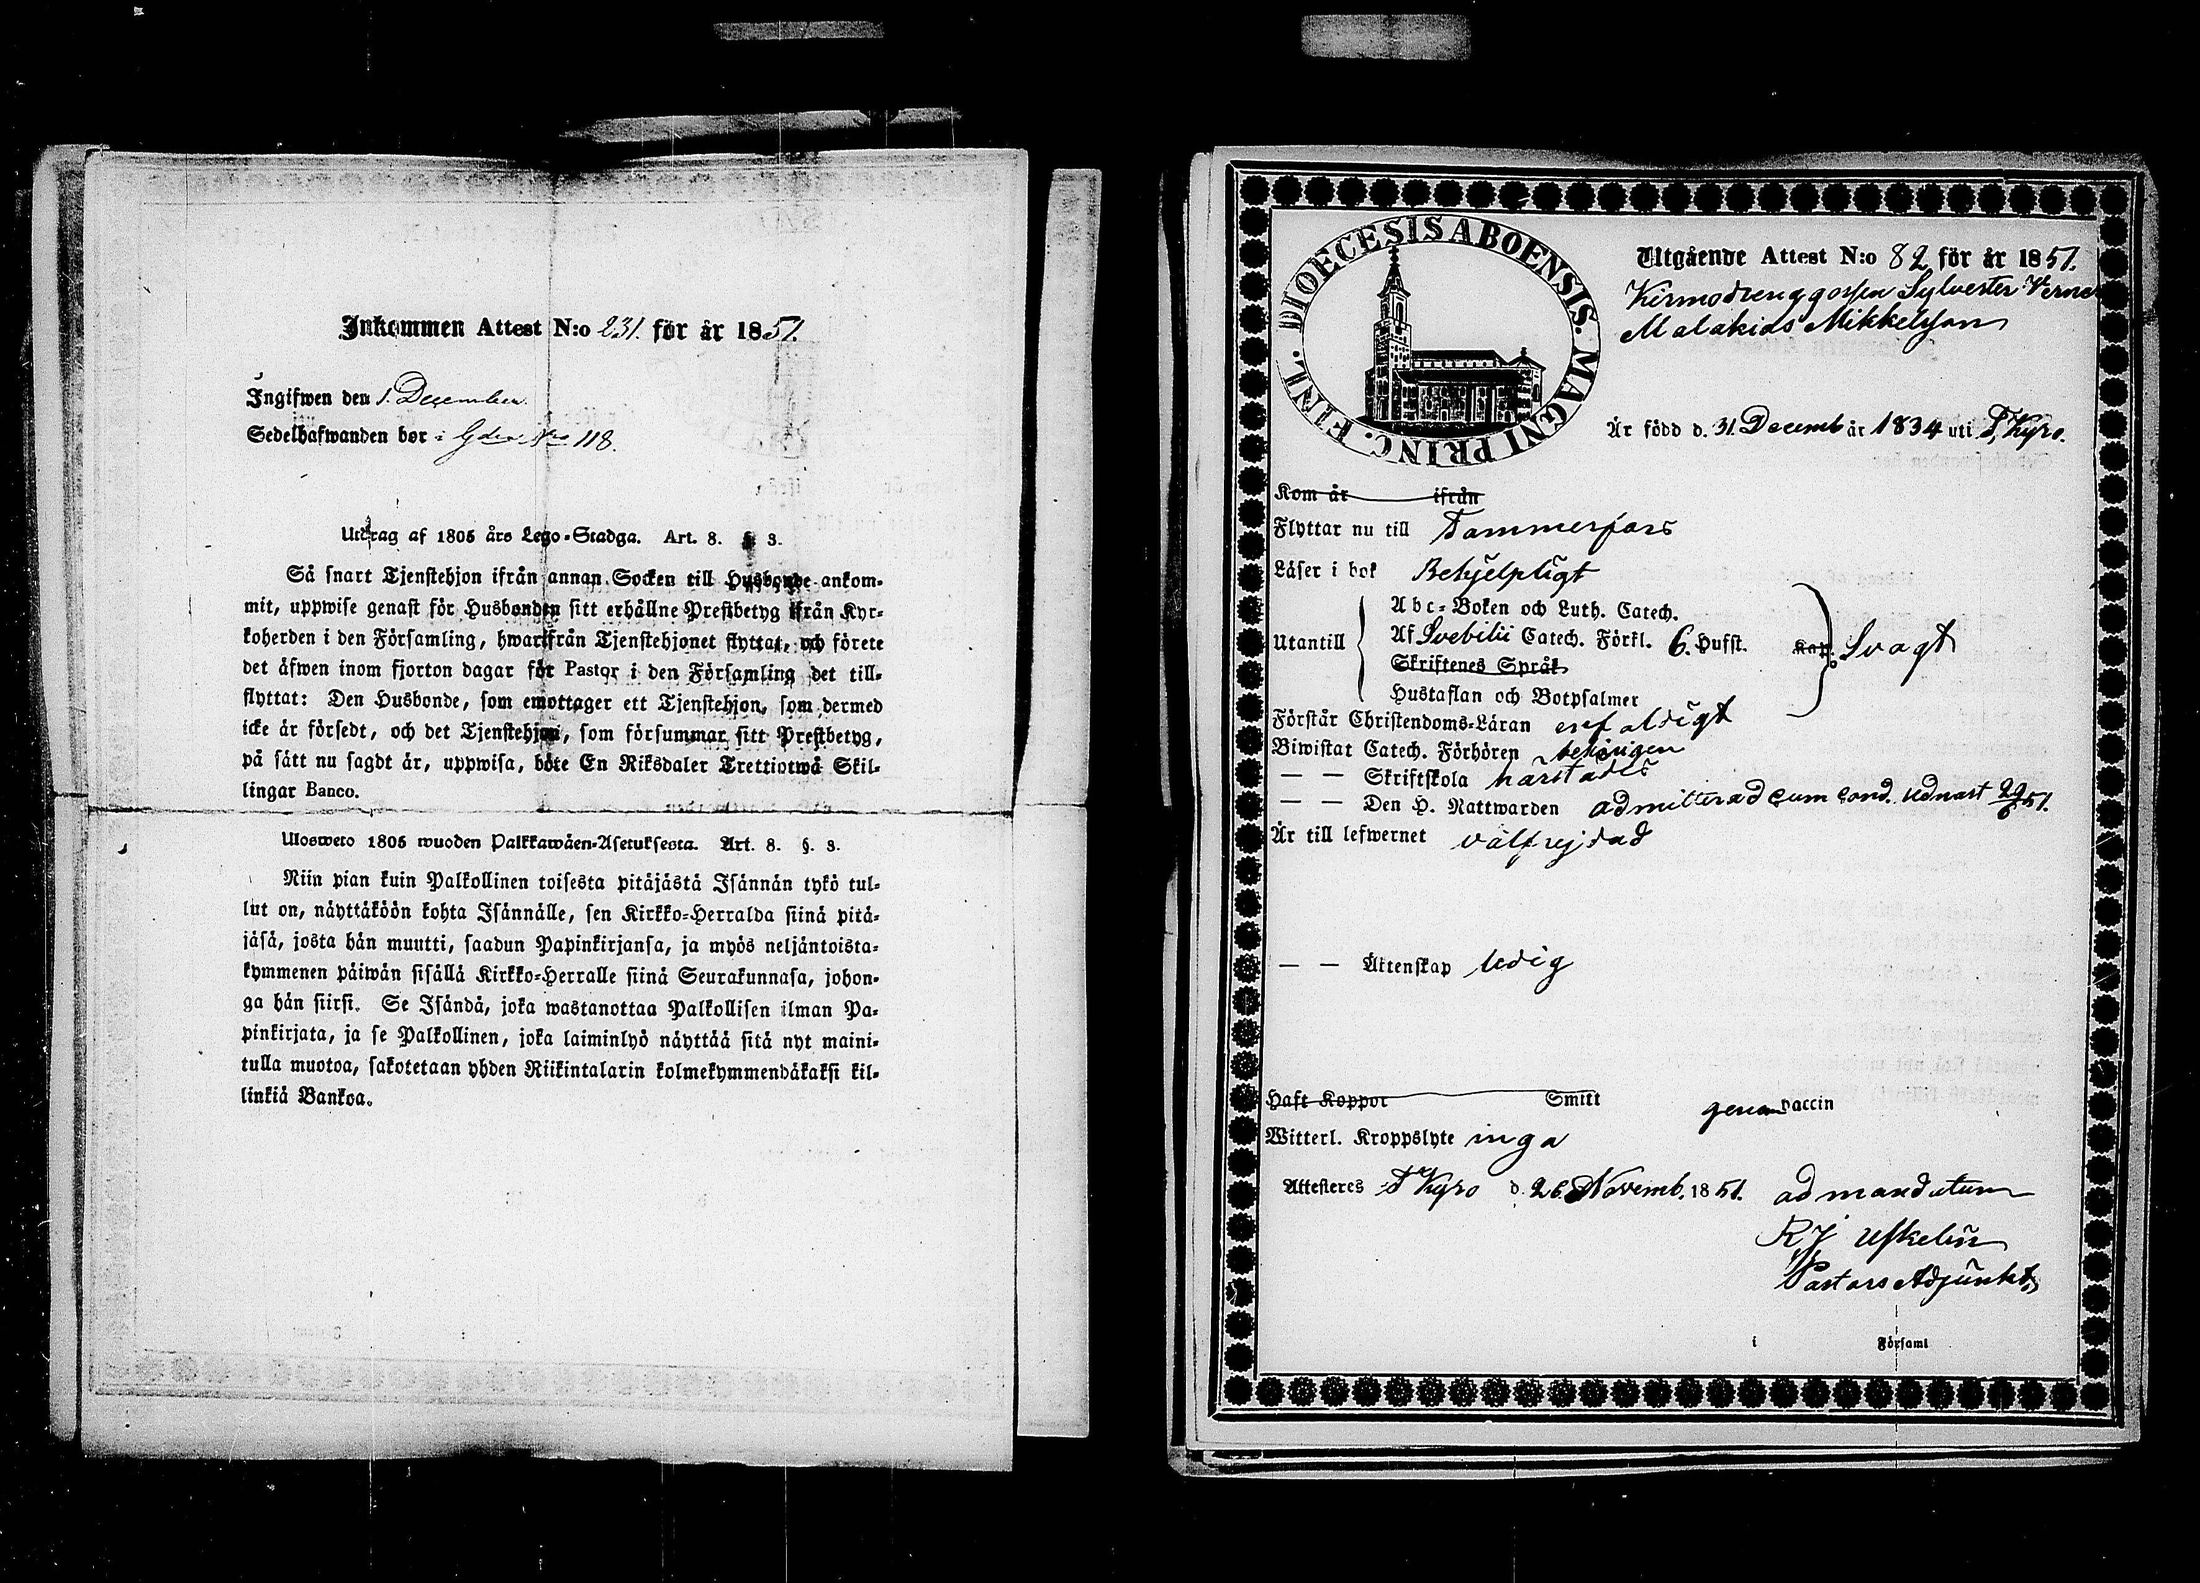 Inkommen Attest N:o 231. för år 1851.
Ingifwen den 1. December
Sedelhafwanden bor i Gden Nro 118.
Utdrag af 1805 års Lego-Stadga. Art. 8. § 3.
Så snart Tjenstehjon ifrån annan Socken till Husbonde ankom-
mit, uppwise genast för Husbonden sitt erhållne Prestbetyg ifrån Kyr-
koherden i den Församling, hwarifrån Tjenstehjonet flyttat, och förete
det äfwen inom fjorton dagar för Pastor i den Församling det till-
flyttat: Den Husbonde, som emottager ett Tjenstehjon, som dermed
icke är försedt, och det Tjenstehjon, som försummar sitt Prestbetyg,
på sätt nu sagdt är, uppwisa, böte En Riksdaler Trettiotwå Skil-
lingar Banco.
Ulosweto 1805 wuoden Palkkawäen-Asetuksesta. Art. 8. §. 3.
Niin pian kuin Palkollinen toisesta pitäjästä Isännän tykö tul-
lut on, näyttäköön kohta Isännälle, sen Kirkko-Herralda siinä pitä-
jäsä, josta hän muutti, saadun Papinkirjansa, ja myös neljäntoista-
kymmenen päiwän sisällä Kirkko-Herralle siinä Seurakunnasa, johon-
ga hän siirsi. Se Isändä, joka wastanottaa Palkollisen ilman Pa-
pinkirjata, ja se Palkollinen, joka laiminlyö näyttää sitä nyt maini-
tulla muotoa, sakotetaan yhden Riikintalarin kolmekymmendäkaksi kil-
linkiä Bankoa.
DIOECESIS ABOENSIS. MAGNI PRINC. FINL.
Utgående Attest N:o 82 för år 1851.
Sylvester Verner
Malakias Mikkelsson
Är född d. 31. Decemb år 1834 uti T. Kyro.
Kom år ifrån
Flyttar nu till Tammerfors
Läser i bok Behjelpligt
Abc-Boken och Luth. Catech.
Utantill Af Svebilii Catech. Förkl. 6. Hufst. Kap. Svagt
Skriftenes Språk
Hustaflan och Botpsalmer
Förstår Christendoms-Läran enfaldigt
Biwistat Catech. Förhören behörigen
— — Skriftskola härstädes
— — Den H. Nattwarden admitterad cum cond. sednast 22/6 51.
Är till lefwernet välfrejdad
— — Ättenskap ledig
Haft Koppor Smitt genom vaccin
Witterl. Kroppslyte inga
Attesteres T Kyro d. 26 Novemb. 1851. ad mandatum
Pastors Adjunkt.
i Församl